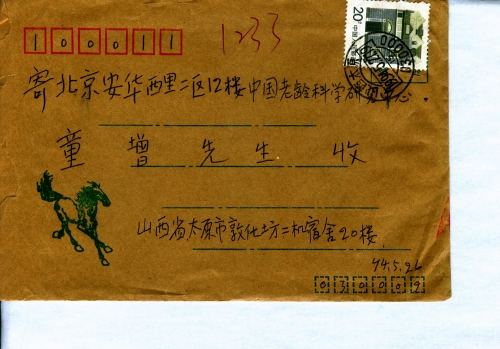 100011
1233
20分
寄北京安华西里二区12楼中国老龄科学研究中心
童增先生 收
山西省太原市敦化坊二机宿舍20楼
94.5.26
030009